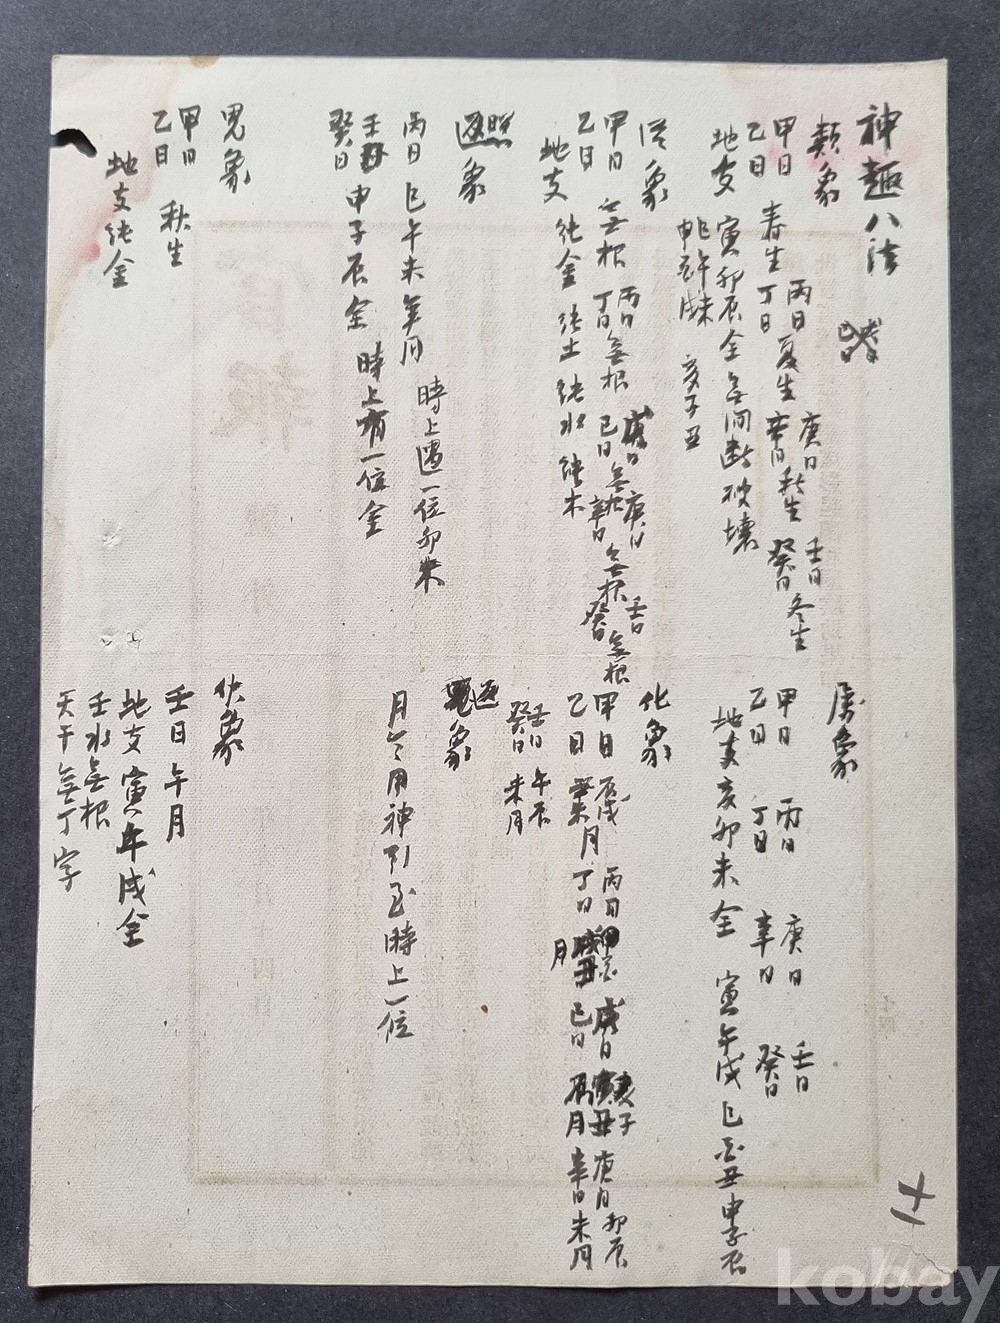 神趣八法
類象
甲日 乙日 春生 丙日 丁日 夏生 庚日 辛日 秋生 壬日 癸日 冬生
地支 寅卯辰全 無間斷破壞
亥子丑
屬象
甲日 乙日 丙日 丁日 庚日 辛日 壬日 癸日
地支亥卯未全 寅午戌 巳酉丑 申子辰
從象
甲日 乙日 無根 丙日 丁日 無根 己日 無根 庚日 辛日 無根 壬日 癸日 無根
地支 純金 純土 純水 純木
化象
甲日 乙日 辰戌 丑未月 丙日 丁日 月 己日 月 庚日 辛日 卯辰 未月
壬日 癸日 午辰 未月
照象
丙日 巳午未年月 時上遇一位卯木
壬 癸日 申子辰全 時上有一位金
返象
月令用神引至時上一位
鬼象
甲日 乙日 秋生
地支純金
伏象
壬日午月
地支寅午戌全
壬水無根
天干無丁字
十一
kobay